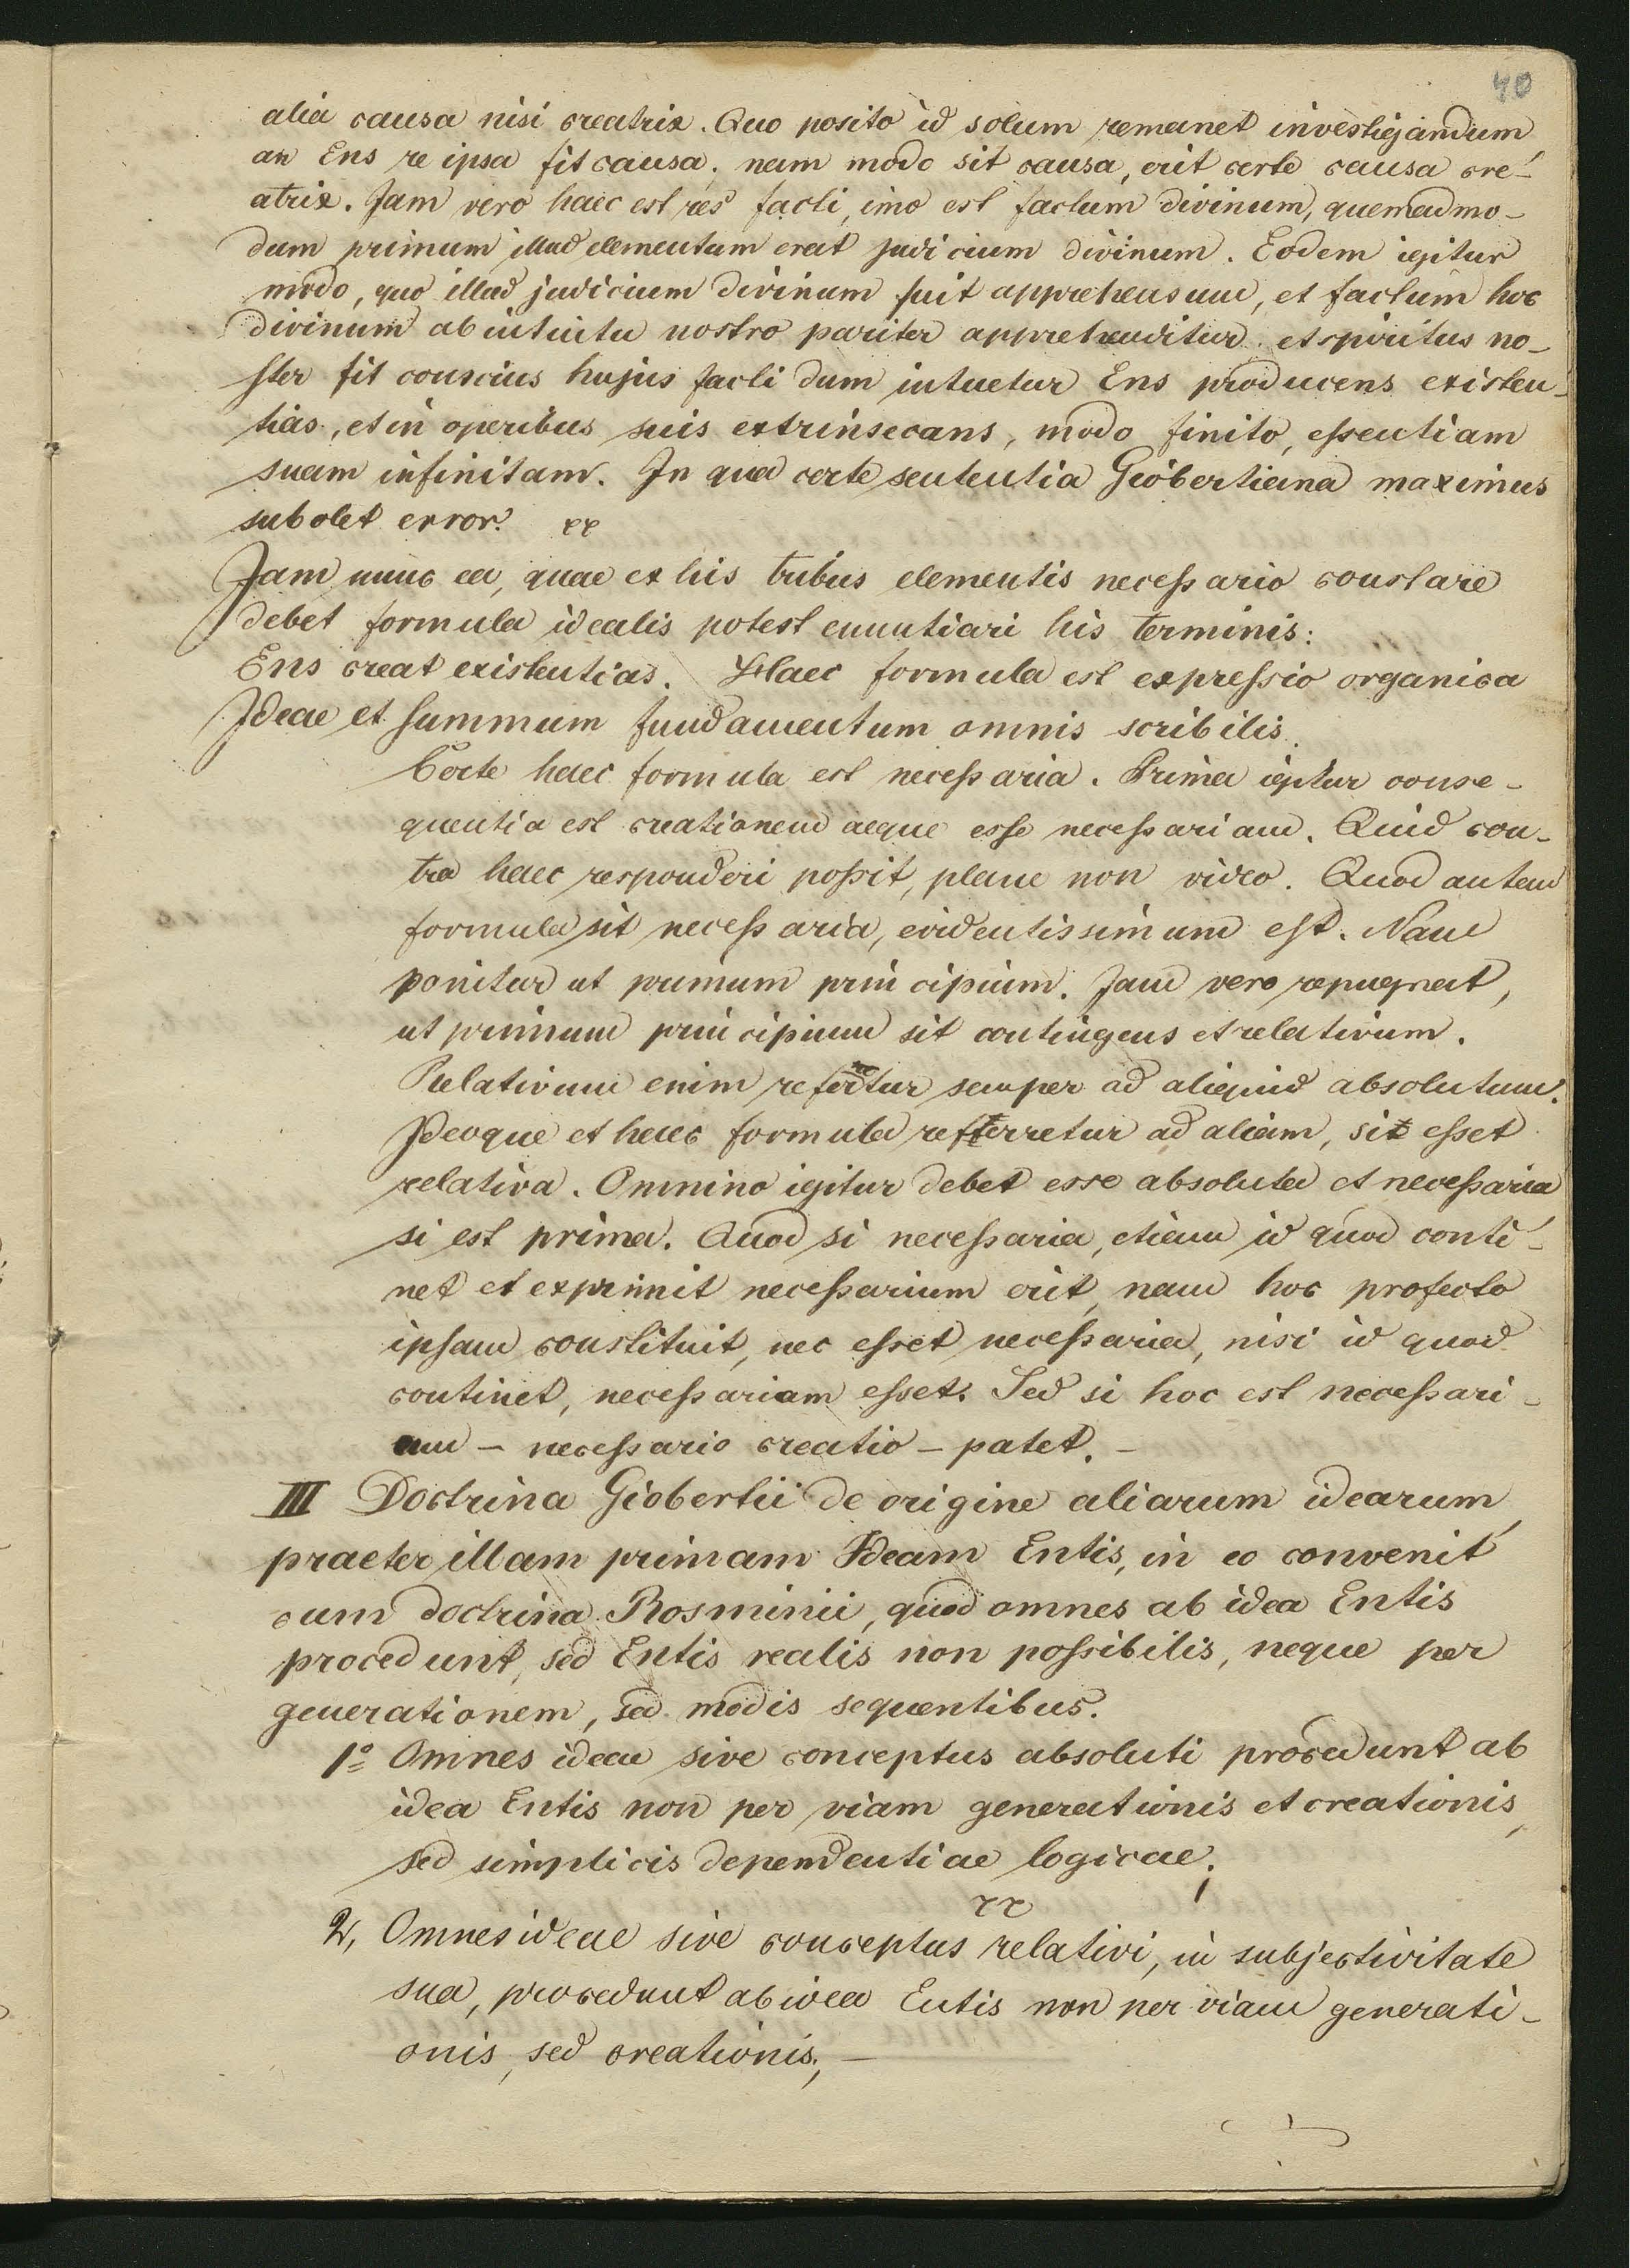 40
alia causa nisi creatrix. Quo posito id solum remanet investigandum
an Ens re ipsa fit causa; nam modo sit causa, erit certe causa cre-
atrix. Jam vero haec est res facti, imo est factum divinum, quemadmo-
dum primum illud elementum erat judicium divinum. Eodem igitur
modo, quo illud judicium divinum fuit apprehensum, et factum hoc
divinum ab intuitu nostro pariter apprehenditur et spiritus no-
ster fit conscius hujus facti dum intuetur Ens producens existen-
tias, et in operibus suis extrinsecans, modo finito, essentiam
suam infinitam. In qua certe sententia Giobertiana maximus
subolet error.
Jam nunc ea, quae ex his tribus elementis necessario constare
debet formula idealis potest enuntiari his terminis:
Ens creat existentias. Haec formula est expressio organica
Ideae et summum fundamentum omnis scribilis.
Certe haec formula est necessaria. Prima igitur conse-
quentia est creationem aeque esse necessariam. Quid con-
tra haec responderi possit, plane non video. Quod autem
formula sit necessaria, evidentissimum est. Nam
ponitur ut primum principium. Jam vero repugnat,
ut primum principium sit contingens et relativum.
Relativum enim refertur semper ad aliquid absolutum.
Ideoque et haec formula referretur ad aliam, si esset
relativa. Omnino igitur debet esse absoluta et necessaria
si est prima. Quod si necessaria, etiam id quod conti-
net et exprimit necessarium erit, nam hoc profecto
ipsam constituit, nec esset necessaria, nisi id quod
continet, necessariam esset. Sed si hoc est necessari-
um – necessario creatio – patet. –
III Doctrina Giobertii de origine aliarum idearum
praeter illam primam Ideam Entis, in eo convenit
cum doctrina Rosminii, quod omnes ab idea Entis
procedunt, sed Entis realis non possibilis, neque per
generationem, sed modis sequentibus.
1º Omnes ideae sive conceptus absoluti procedunt ab
idea Entis non per viam generationis et creationis,
sed simplicis dependentiae logicae;
2, Omnes ideae sive conceptus relativi, in subjectivitate
sua, procedunt ab idea Entis non per viam generati-
onis, sed creationis; –